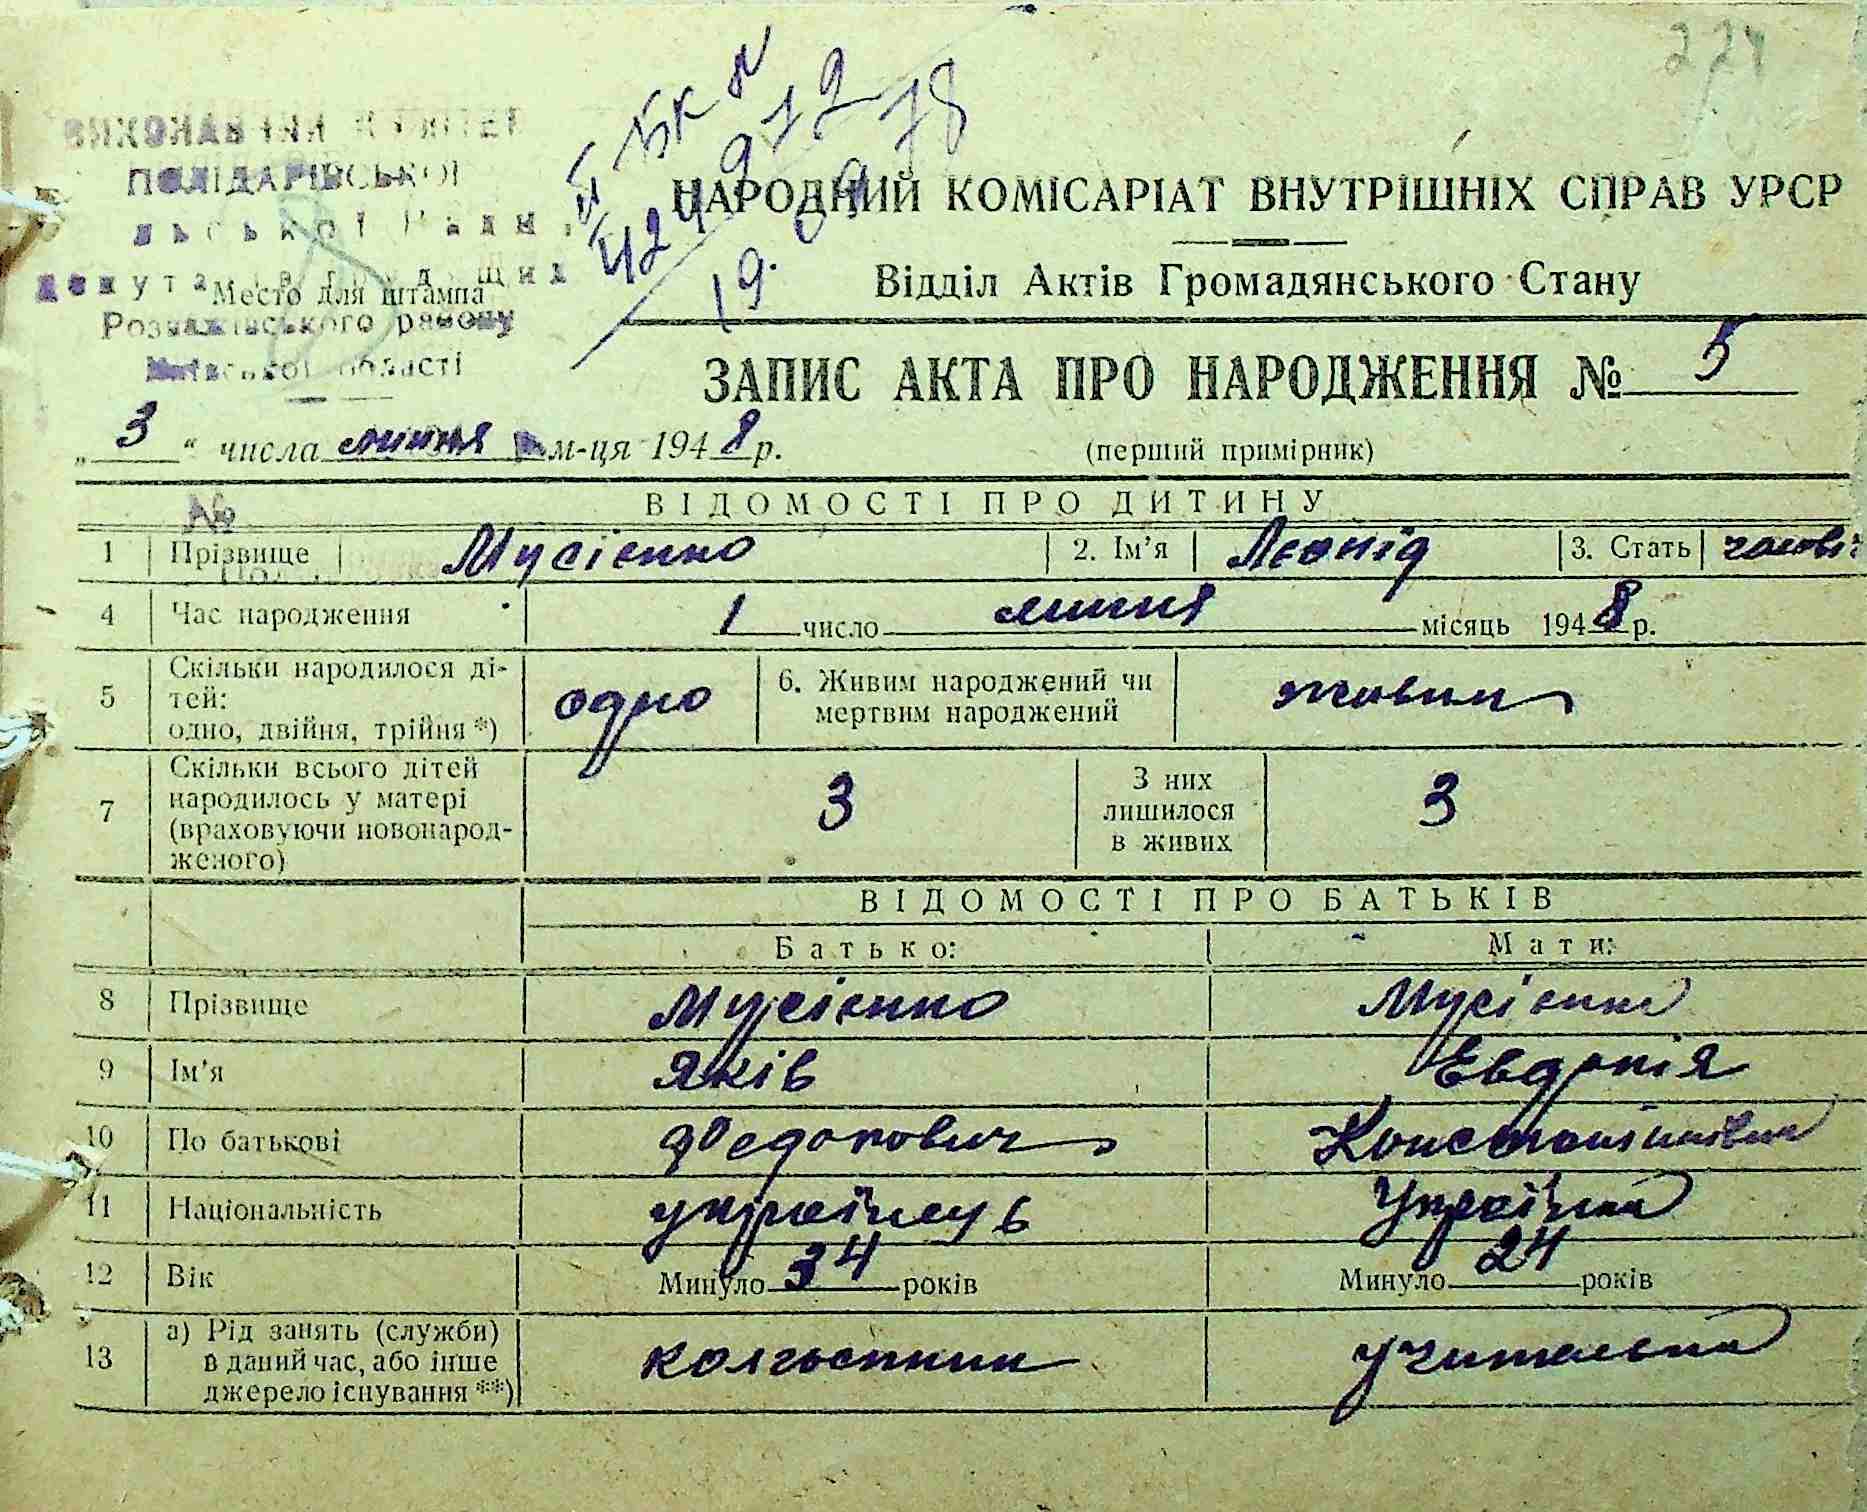 224
ІІ БК №
424972
19.09.78
ВИКОНАВЧИЙ КОМІТЕТ
ПОЛІДАРІВСЬКОЇ
льської Ради
депутатів трудящих
Место для штампа
Розважівського району
Київської області
НАРОДНИЙ КОМІСАРІАТ ВНУТРІШНІХ СПРАВ УРСР
Відділ Актів Громадянського Стану
ЗАПИС АКТА ПРО НАРОДЖЕННЯ № 5
„ 3 “ числа липня м-ця 1948 р. (перший примірник)
№
ВІДОМОСТІ ПРО ДИТИНУ
1 Прізвище Мусієнко 2. Ім’я Леонід 3. Стать
4 Час народження 1 число липня місяць 1948 р.
5 Скільки народилося ді-
тей:
одно, двійня, трійня *) одно 6. Живим народжений чи
мертвим народжений живим
7 Скільки всього дітей
народилось у матері
(враховуючи новонарод-
женого) 3 З них
лишилося
в живих 3
ВІДОМОСТІ ПРО БАТЬКІВ
Батько: Мати:
8 Прізвище Мусієнко Мусієнко
9 Ім’я Яків Евдокія
10 По батькові Федорович Константинівна
11 Національність українець Українка
12 Вік Минуло 34 років Минуло 24 років
13 а) Рід занять (служби)
в даний час, або інше
джерело існування **) колгоспник учителька